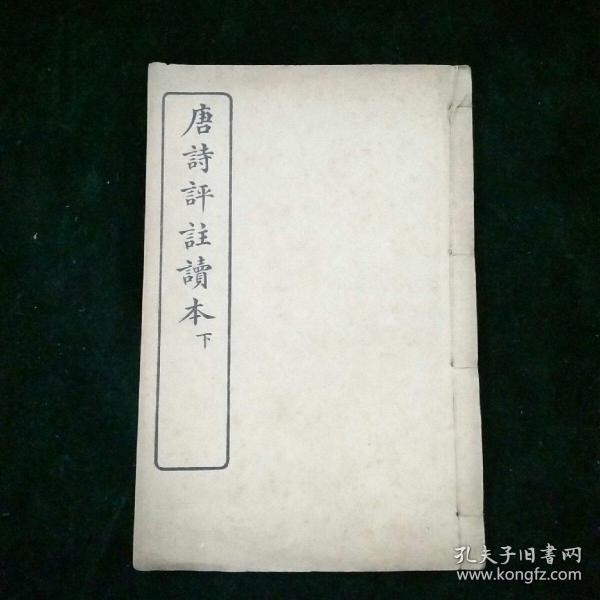 唐詩評註讀本下
孔夫子旧書网
www.kongfz.com